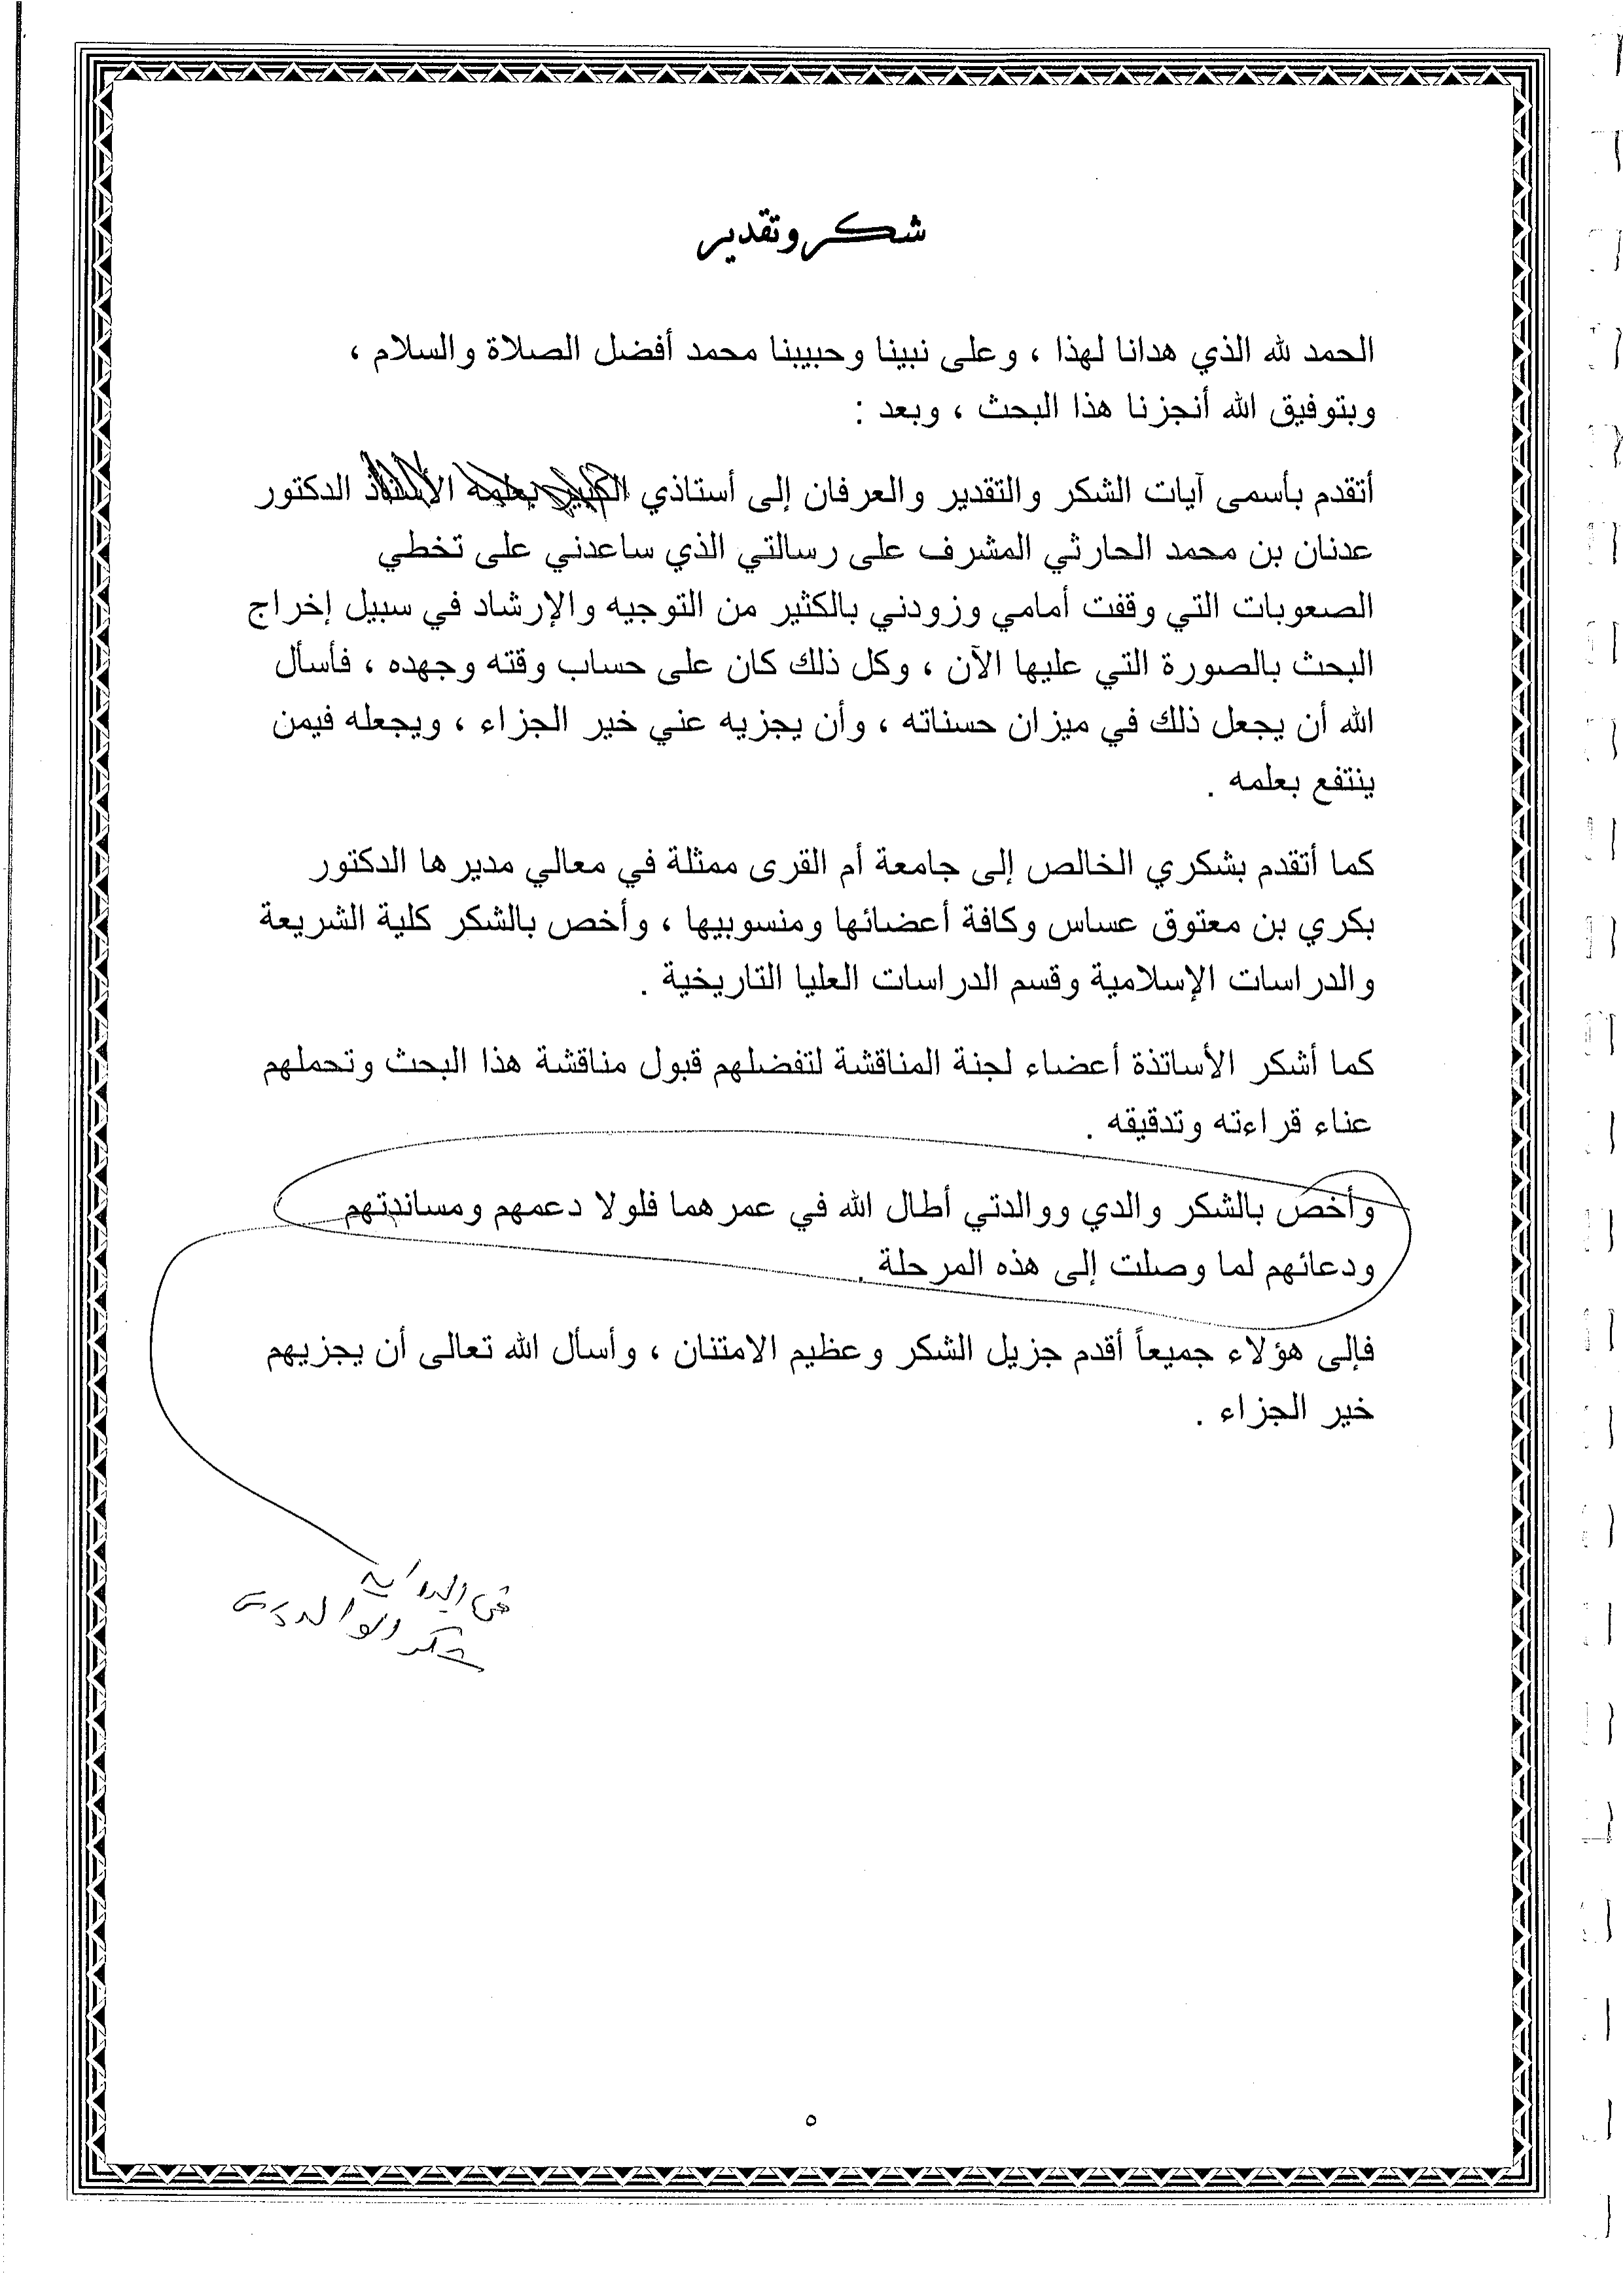 شكر وتقدير
الحمد لله الذي هدانا لهذا ، وعلى نبينا وحبيبنا محمد أفضل الصلاة والسلام ،
وبتوفيق الله أنجزنا هذا البحث ، وبعد :
أتقدم بأسمى آيات الشكر والتقدير والعرفان إلى أستاذي الكبير بعلمه الأستاذ الدكتور
عدنان بن محمد الحارثي المشرف على رسالتي الذي ساعدني على تخطي
الصعوبات التي وقفت أمامي وزودني بالكثير من التوجيه والإرشاد في سبيل إخراج
البحث بالصورة التي عليها الآن ، وكل ذلك كان على حساب وقته وجهده ، فأسأل
الله أن يجعل ذلك في ميزان حسناته ، وأن يجزيه عني خير الجزاء ، ويجعله فيمن
ينتفع بعلمه .
كما أتقدم بشكري الخالص إلى جامعة أم القرى ممثلة في معالي مديرها الدكتور
بكري بن معتوق عساس وكافة أعضائها ومنسوبيها ، وأخص بالشكر كلية الشريعة
والدراسات الإسلامية وقسم الدراسات العليا التاريخية .
كما أشكر الأساتذة أعضاء لجنة المناقشة لتفضلهم قبول مناقشة هذا البحث وتحملهم
عناء قراءته وتدقيقه .
وأخص بالشكر والدي ووالدتي أطال الله في عمرهما فلولا دعمهم ومساندتهم
ودعائهم لما وصلت إلى هذه المرحلة .
فإلى هؤلاء جميعاً أقدم جزيل الشكر وعظيم الامتنان ، وأسأل الله تعالى أن يجزيهم
خير الجزاء .
في البداية
شكر الوالدين
٥